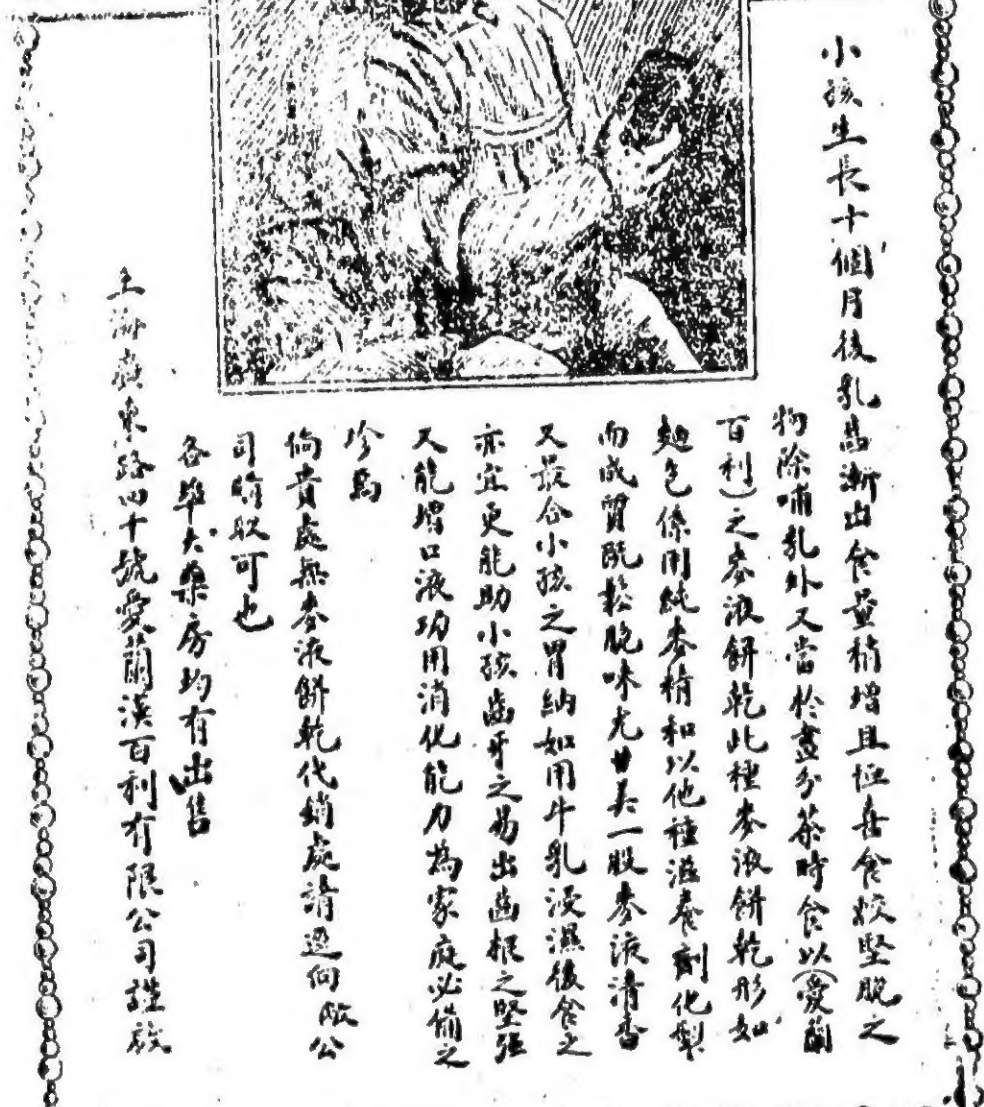 小孩生長十個月後乳齒漸出食量稍增且恆喜食較堅脆之
物除哺乳外又當於晝分茶時食以(愛蘭
百利)之麥液餅乾此種麥液餅乾形如
麵包係用純麥精和以他種滋養劑化製
而成質既鬆脆味尤甘美一股麥液清香
又最合小孩之胃納如用牛乳浸濕後食之
亦宜更能助小孩齒牙之易出齒根之堅強
又能增口液功用消化能力為家庭必備之
珍焉
倘貴處無麥液餅乾代銷處請逕向敝公
司購取可也
各埠大藥房均有出售
上海廣東路四十號愛蘭漢百利有限公司謹啟